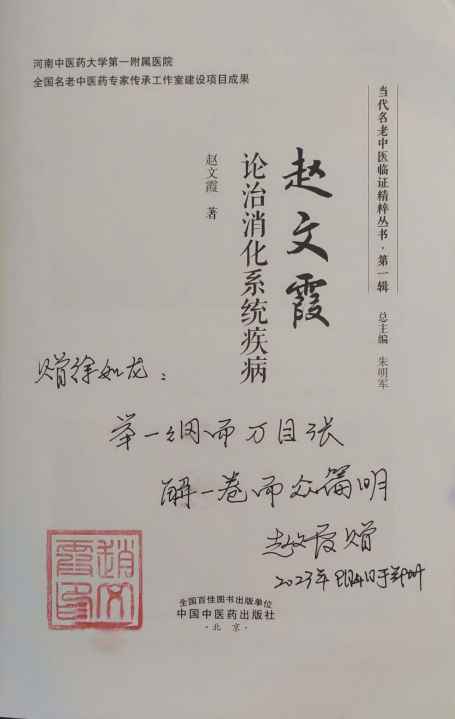 河南中医药大学第一附属医院
全国名老中医药专家传承工作室建设项目成果
当代名老中医临证精粹丛书·第一辑
总主编 朱明军
赵文霞
论治消化系统疾病
赵文霞 著
赠徐如龙：
举一纲而万目张
解一卷而众篇明
赵文霞赠
2023年 于郑州
趙文霞印
全国百佳图书出版单位
中国中医药出版社
·北京·